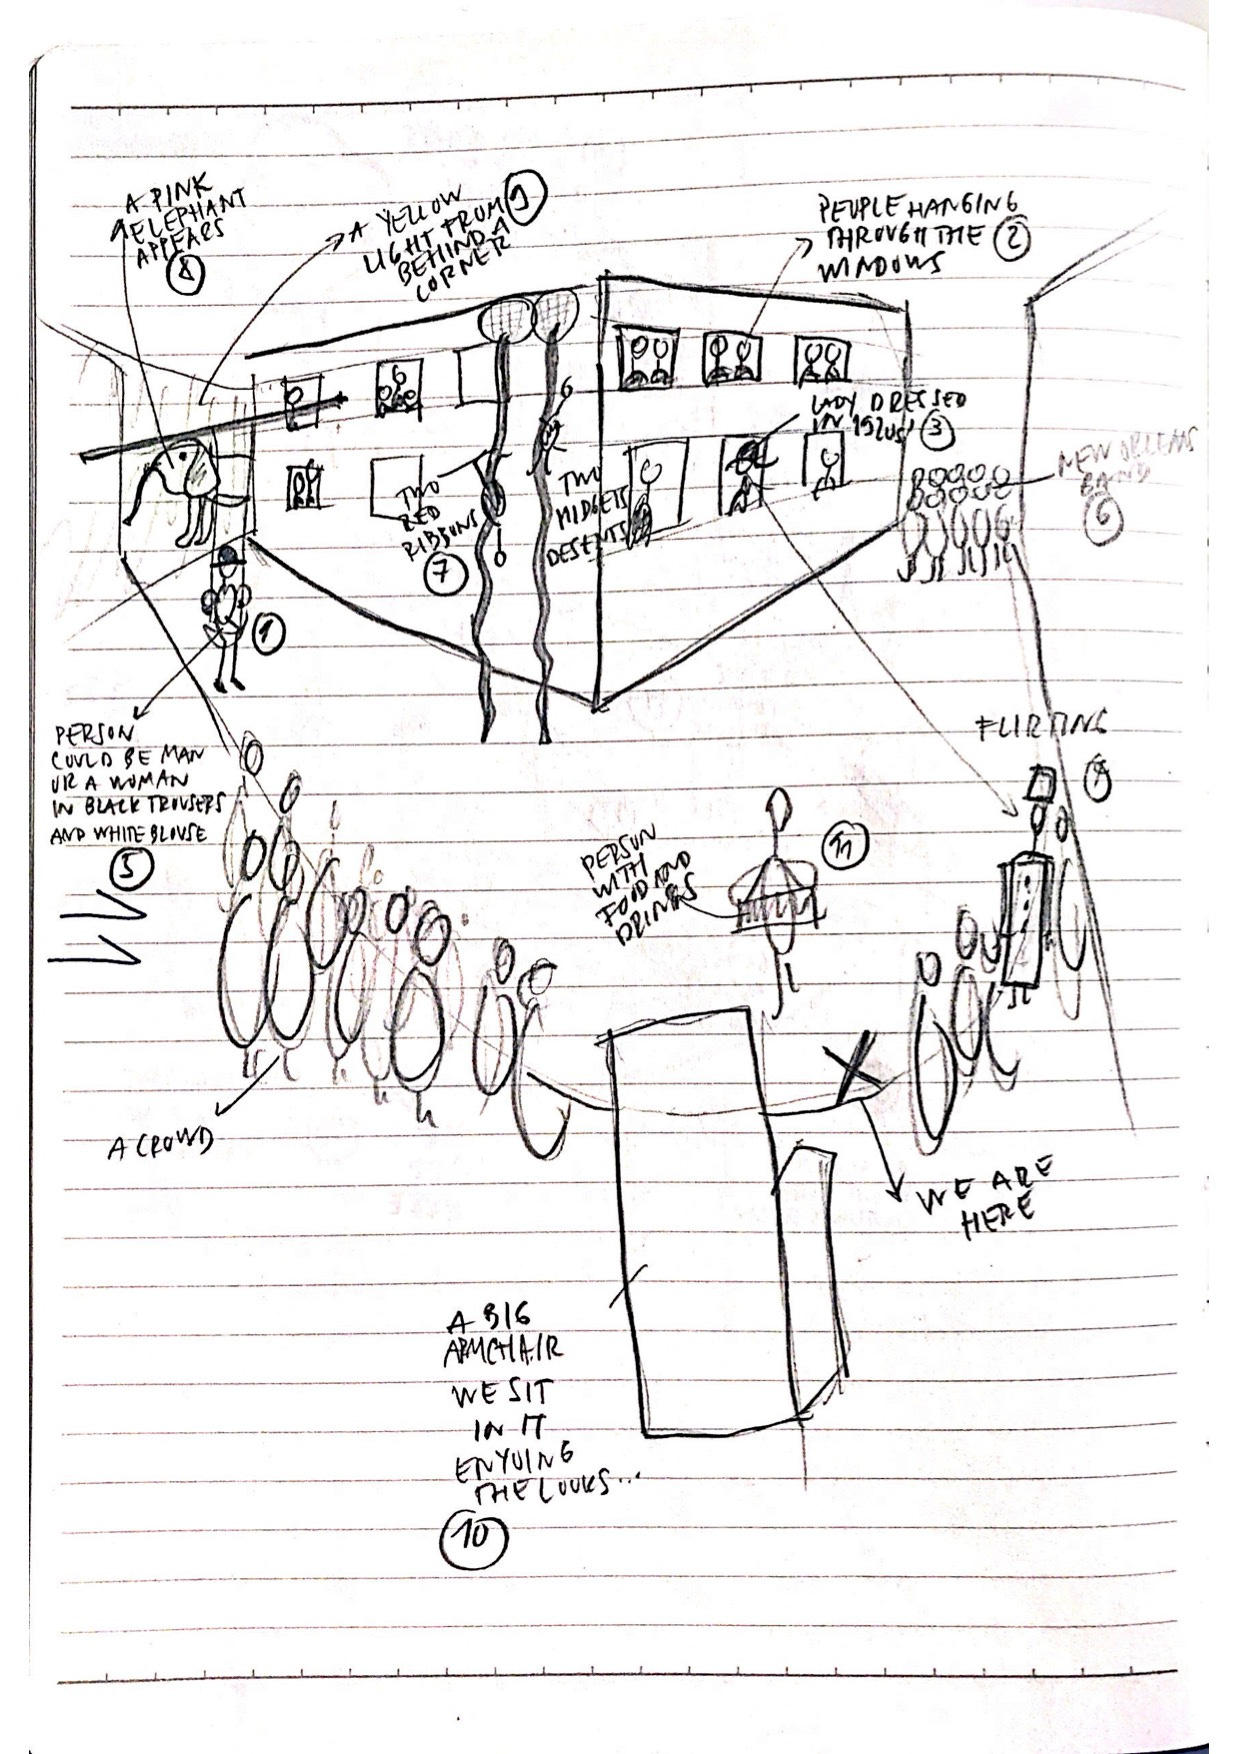 A PINK
ELEPHANT
APPEARS
8
A YELLOW
LIGHT FROM
BEHIND A
CORNER
9
PEOPLE HANGING
THROUGH THE
WINDOWS
2
LADY DRESSED
IN 1920S'
3
NEW ORLEANS
BAND
6
TWO
RED
RIBBONS
7
TWO
MIDGETS
DESENTS
1
PERSON
COULD BE MAN
OR A WOMAN
IN BLACK TROUSERS
AND WHITE BLOUSE
5
FLIRTING
PERSON
WITH
FOOD AND
DRINKS
11
A CROWD
WE ARE
HERE
A BIG
ARMCHAIR
WE SIT
IN IT
ENYOING
THE LOOKS...
10